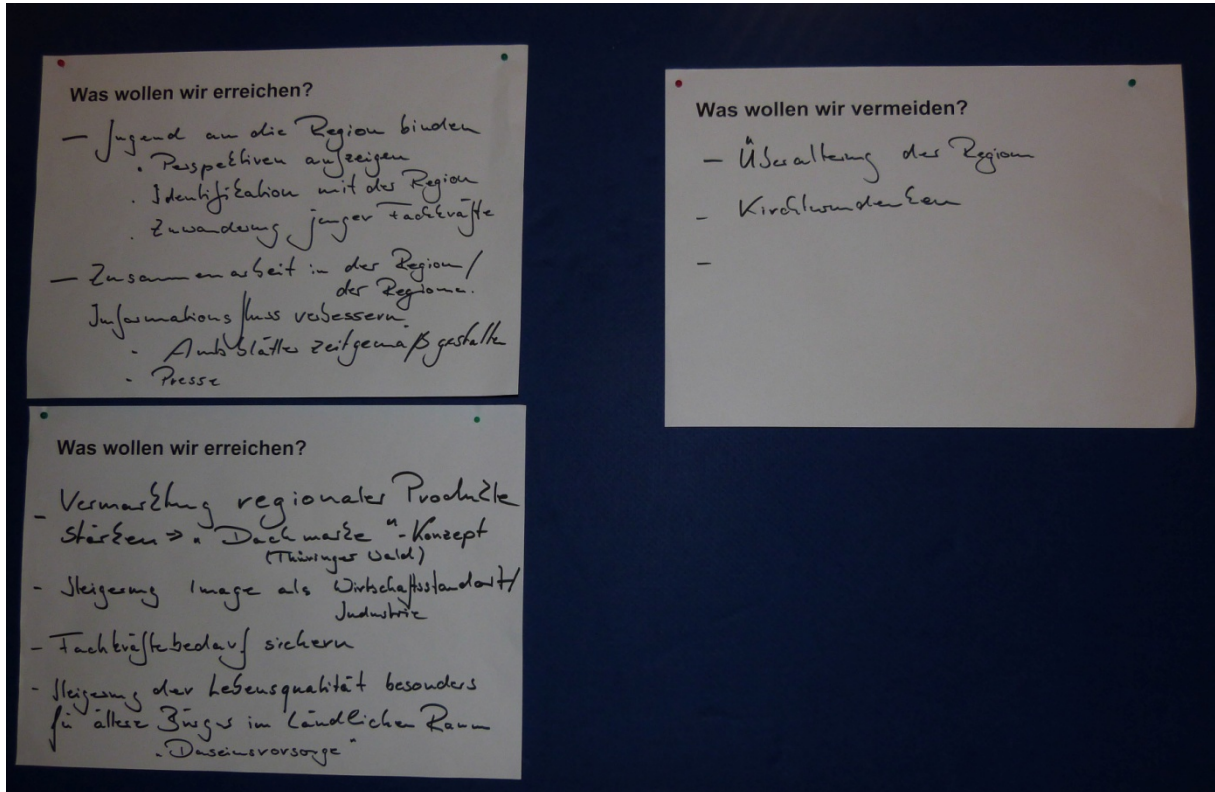 Was wollen wir erreichen?
— Jugend an die Region binden
. Perspektiven aufzeigen
. Identifikation mit der Region
. Zuwanderung junger Fachkräfte
— Zusammenarbeit in der Region /
der Regionen.
Informationsfluss verbessern
. Amtsblätter zeitgemäß gestalten
- Presse
Was wollen wir erreichen?
- Vermarktung regionaler Produkte
stärken => „Dachmarke"-Konzept
(Thüringer Wald)
- Steigerung Image als Wirtschaftsstandort/
Industrie
- Fachkräftebedarf sichern
- Steigerung der Lebensqualität besonders
für ältere Bürger im Ländlichen Raum
„Daseinsvorsorge"
Was wollen wir vermeiden?
- Überalterung der Region
- Kirchturmdenken
-